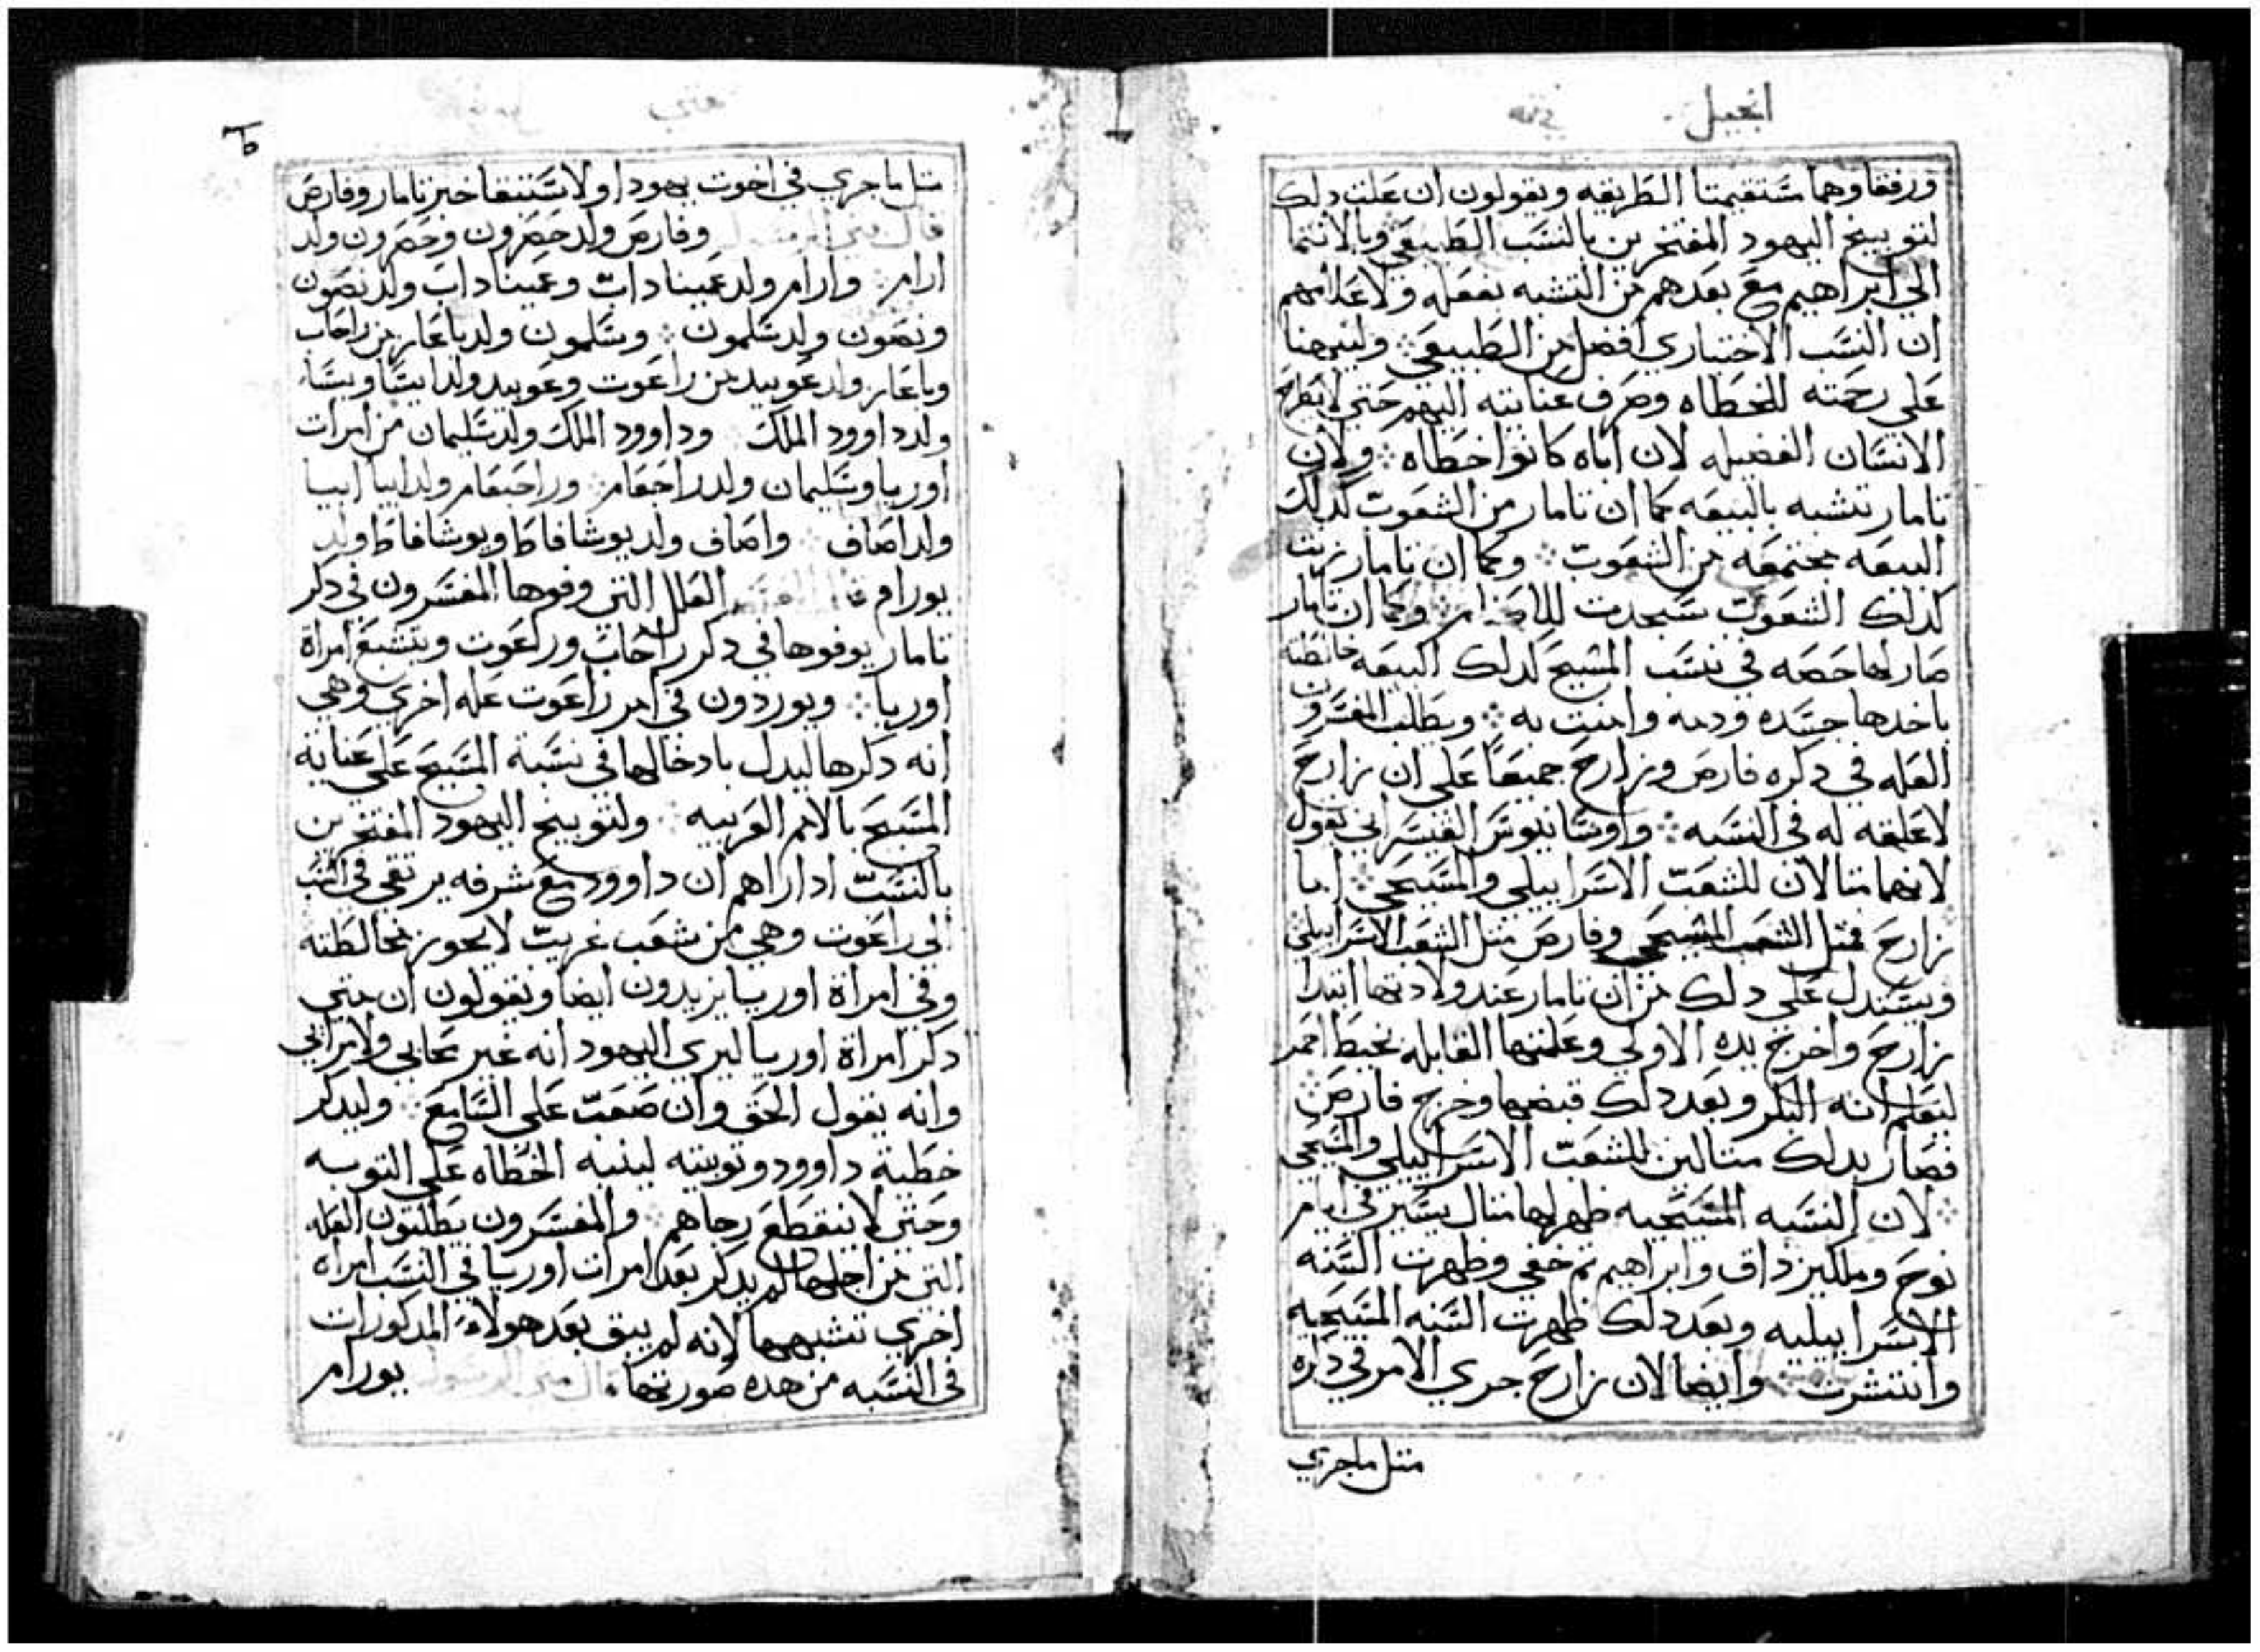 انجيل
ورفقا وهما مستقيمتا الطريقه ويقولون ان علت دلك
لتوبيخ اليهود المفتخرين بالنسب الطبيعي وبالانتما
الي ابراهيم مع بعدهم من التشبه بفعله ولاعلامهم
ان النسب الاختياري افضل من الطبيعي ولينبهنا
علي رحمته للخطاه وصرف عنايته اليهم حتي لا
الانسان الفضيله لان اباه كانوا خطاه ولان
تامار تتشبه بالبيعه كما ان تامار من الشعوب كدلك
البيعه مجتمعه من الشعوب وكما ان تامار زنت
كدلك الشعوب سجدت للاصنام وكما ان تامار
صار لها حصه في نسب المسيح كدلك البيعه
باخدها جسده ودمه وامنت به ويطلب المفسرون
العله في دكره فارص وزارح جميعا علي ان زارح
لا علقه له في النسبه واوسابيوس القيسراني يقول
لانهما مثالان للشعب الاسراييلي والمسيحي اما
زارح فمثل الشعب المسيحي وفارص مثل الشعب الاسراييلي
ويستدل علي دلك من ان تامار عند ولادتها ابتدا
زارح واخرج يده الاولي وعلمتها القابله بخيط احمر
ليعلم انه البكر وبعد دلك قبضها وخرج فارص
فصار بدلك مثالين للشعب الاسراييلي والمسيحي
لان النسبه المسيحيه ظهر لها مثال يسير في ايام
نوح وملكيزداق وابراهيم ثم خفي وظهرت السنه
الاسراييليه وبعد دلك ظهرت السنه المسيحيه
وانتشرت وايضا لان زارح جري الامر في دكره
مثل ماجري
متي
مثل ماجري في اخوت يهودا ولاستنفا خبر تامار وفارص
وفارص ولد حصرون وحصرون ولد
ارام وارام ولد عميناداب وعميناداب ولد نصون
ونصون ولد سلمون وسلمون ولد باعاز من راحاب
وباعاز ولد عوبيد من راعوت وعوبيد ولد ايسا ويسا
ولد داوود الملك وداوود الملك ولد سليمان من امرات
اوريا وسليمان ولد راحبعام وراحبعام ولد ابيا ابيا
ولد اصاف واصاف ولد يوشافاط ويوشافاط ولد
يورام العلل التي وفوها المفسرون في دكر
تامار يوفوها في دكر راحاب وراعوت وبتشبع امراة
اوريا ويوردون في امر راعوت عله اخري وهي
انه دكرها ليدل بادخالها في نسبة المسيح علي عنايه
المسيح بالامم الغريبه ولتوبيخ اليهود المفتخرين
بالنسب ادا راهم ان داوود مع شرفه يرتقي في النسب
الي راعوت وهي من شعب غريب لايجوز مخالطته
وفي امراة اوريا يزيدون ايضا ويقولون ان متي
دكر امراة اوريا ليري اليهود انه غير محابي ولامرايي
وانه يقول الحق وان صعب علي السامع وليدكر
خطية داوود وتوبته لينبه الخطاه علي التوبه
وحتي لاينقطع رجاهم والمفسرون يطلبون العله
التي من اجلها لم يدكر بعد امرات اوريا في النسب امراه
اخري تشبهها لانه لم يبق بعد هولاء المدكورات
في النسبه من هده صورتها قال متي الرسول يورام